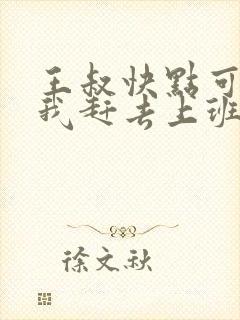 王叔快點可
我赶去上班
徐文秋